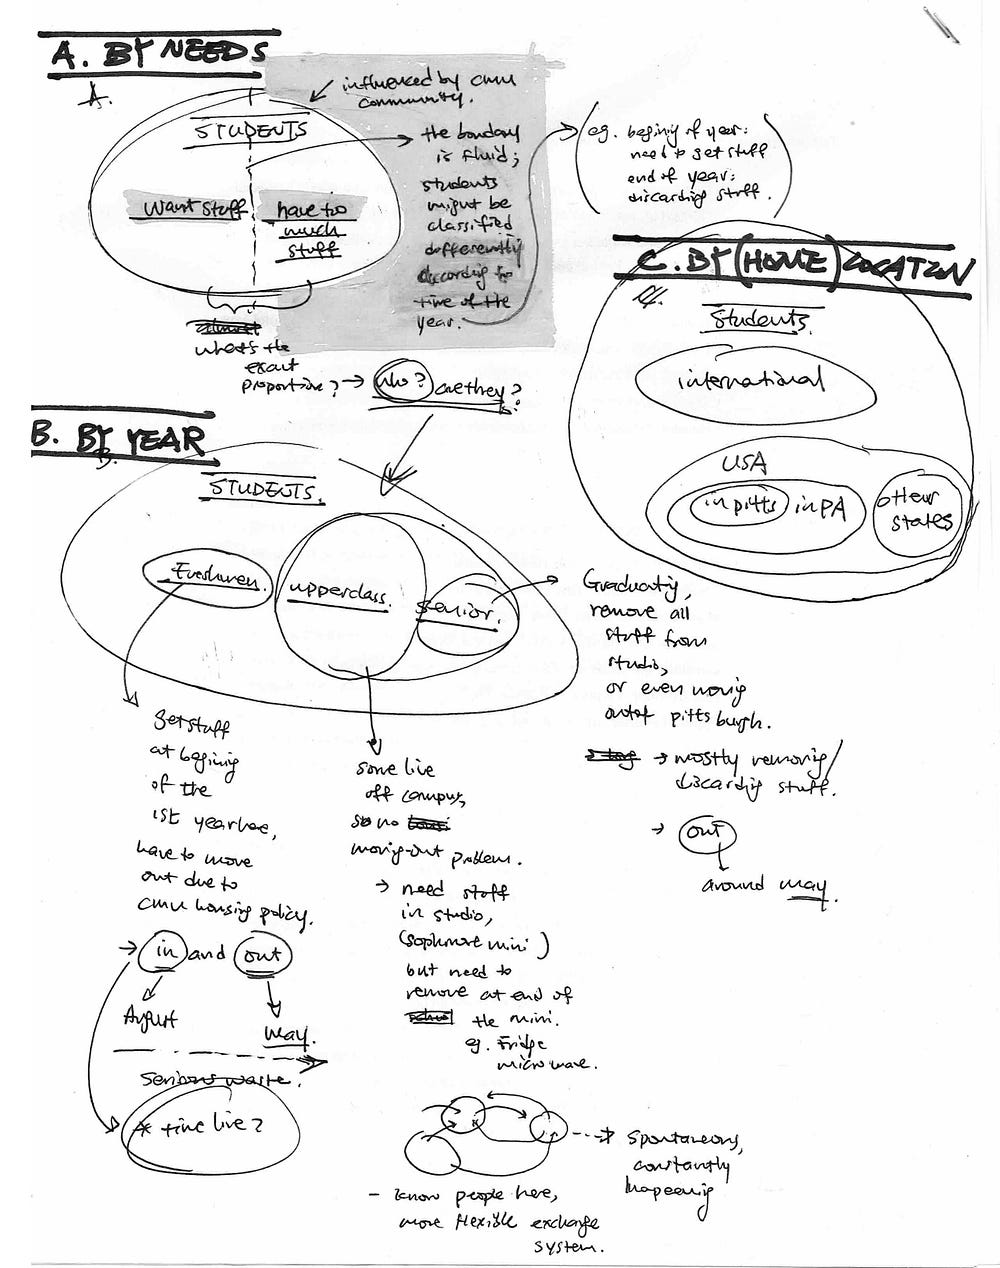 A. BY NEEDS
A.
STUDENTS
want stuff
have too
much
stuff
influenced by CMU
community.
the boundary
is fluid;
students
might be
classified
differently
according to
time of the
year.
(eg. begining of year:
need to get stuff
end of year:
discarding stuff.)
almost
what's the
exact
proportion? → who? are they?
C. BY (HOME) LOCATION
Students
international
USA
in pitts
in PA
other
states
B. BY YEAR
B.
STUDENTS.
Freshmen.
upperclass.
senior.
get stuff
at begining
of the
1st year
have to move
out due to
CMU housing policy.
→ in and out
August
may.
Serious waste.
* time line?
some live
off campus,
so no
moving-out problem.
→ need stuff
in studio,
(sophmore mini)
but need to
remove at end of
school the mini.
eg. Fridge
microwave.
Spontaneous,
constantly
hapeening
- know people here,
more flexible exchange
system.
Graduating,
remove all
stuff from
studio,
or even moving
out of pittsburgh.
→ mostly removing/
discarding stuff.
→ out
around may.